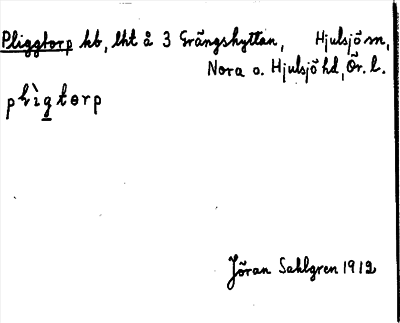 Pliggtorp hb, lht å 3 Grängshyttan, Hjulsjö sn,
Nora o. Hjulsjö hd, Ör. l.
plìgtorp
Jöran Sahlgren 1912